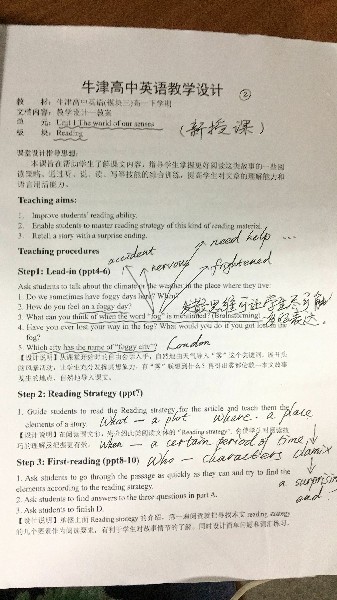 牛津高中英语教学设计
②
教 材：牛津高中英语(模块三)高一下学期
文档内容：教学设计—教案
单 元：Unit 1 The world of our senses
板 块：Reading
(新授课)
课堂设计指导思想：
本课旨在帮助学生了解课文内容，指导学生掌握更好阅读这类故事的一些阅
读策略，通过听、说、读、写等技能的综合训练，提高学生对文章的理解能力和
语言运用能力。
Teaching aims:
1. Improve students' reading ability.
2. Enable students to master reading strategy of this kind of reading material.
3. Retell a story with a surprise ending.
Teaching procedures
accident
nervous
need help ...
frightened
Step1: Lead-in (ppt4-6)
Ask students to talk about the climate or the weather in the place where they live:
1. Do we sometimes have foggy days here? When?
2. How do you feel on a foggy day?
3. What can you think of when the word "fog" is mentioned? (Brainstorming)
发散思维 可让学生尽可能
多的表达.
4. Have you ever lost your way in the fog? What would you do if you got lost in the
fog?
5. Which city has the name of "foggy city"?
London
Step 2: Reading Strategy (ppt7)
1. Guide students to read the Reading strategy for the article and teach them the
elements of a story.
What — a plot
Where — a place
When — a certain period of time
Who — characters
climax
a surprising
end
Step 3: First-reading (ppt8-10)
1. Ask students to go through the passage as quickly as they can and try to find the
elements according to the reading strategy.
2. Ask students to find answers to the three questions in part A.
3. Ask students to finish D.